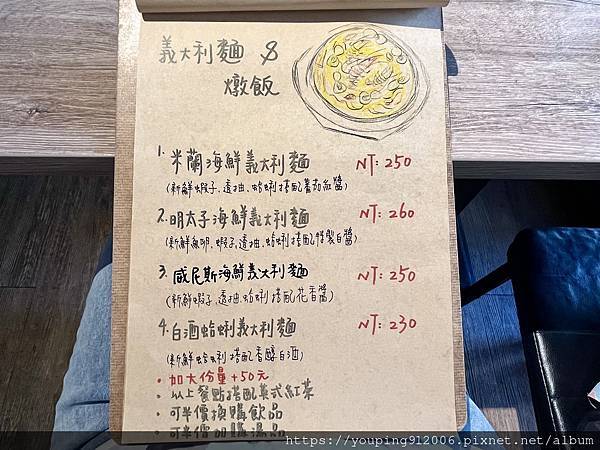 義大利麵 &
燉飯
1. 米蘭海鮮義大利麵 NT: 250
(新鮮蝦子.透抽.蛤蜊搭配蕃茄紅醬)
2. 明太子海鮮義大利麵 NT: 260
(新鮮魚卵.蝦子.透抽.蛤蜊搭配特製白醬)
3. 威尼斯海鮮義大利麵 NT: 250
(新鮮蝦子.透抽.蛤蜊搭配花香醬)
4. 白酒蛤蜊義大利麵 NT: 230
(新鮮蛤蜊搭配香醇白酒)
• 加大份量+50元
• 以上餐點搭配英式紅茶
• 可半價換購飲品
• 可半價加購湯品
https://youping912006.pixnet.net/album